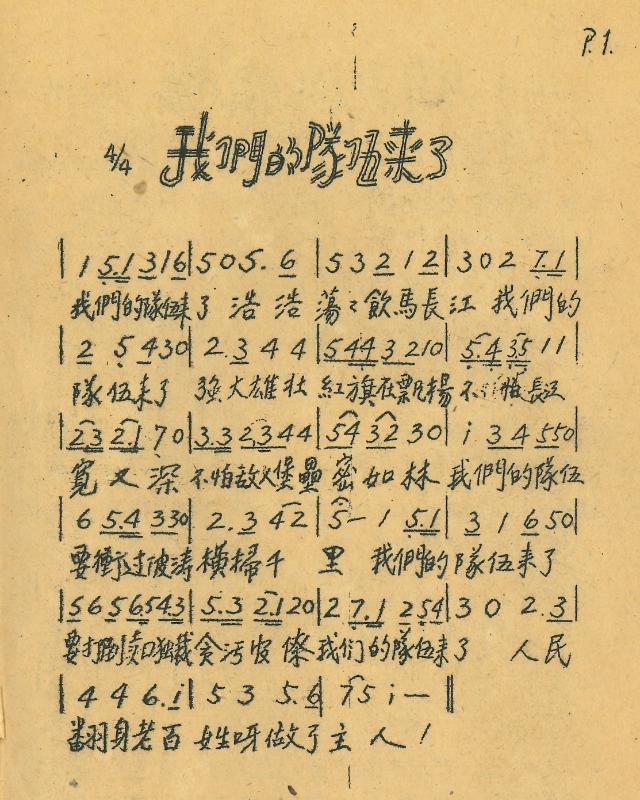 P.1.
4/4 我們的隊伍来了
| 1 5.1 316 | 505. 6 | 5 3 2 1 2 | 302 7.1 |
我們的隊伍来了 浩 浩 蕩々飲馬長江 我們的
| 2 5 430 | 2.3 4 4 | 544 3 210 | 5.4 35 11 |
隊伍来了 強大雄壮 紅旗在飄揚 不怕長江
| 23 21 70 | 3.3 2.3 44 | 54 32 30 | i 3 4 550 |
寬又深 不怕敌人堡壘密如林 我們的隊伍
| 6 5.4 330 | 2.3 42 | 5— 1 5.1 | 3 1 6 50 |
要衝过波涛横掃千 里 我們的隊伍来了
| 56 56543 | 5.3 2.120 | 2 7.1 254 | 3 0 2.3 |
要打倒独裁贪污官僚我们的隊伍来了 人民
| 4 4 6.i | 5 3 5.6 | 75 i — ‖
翻身老百 姓呀做了主人！